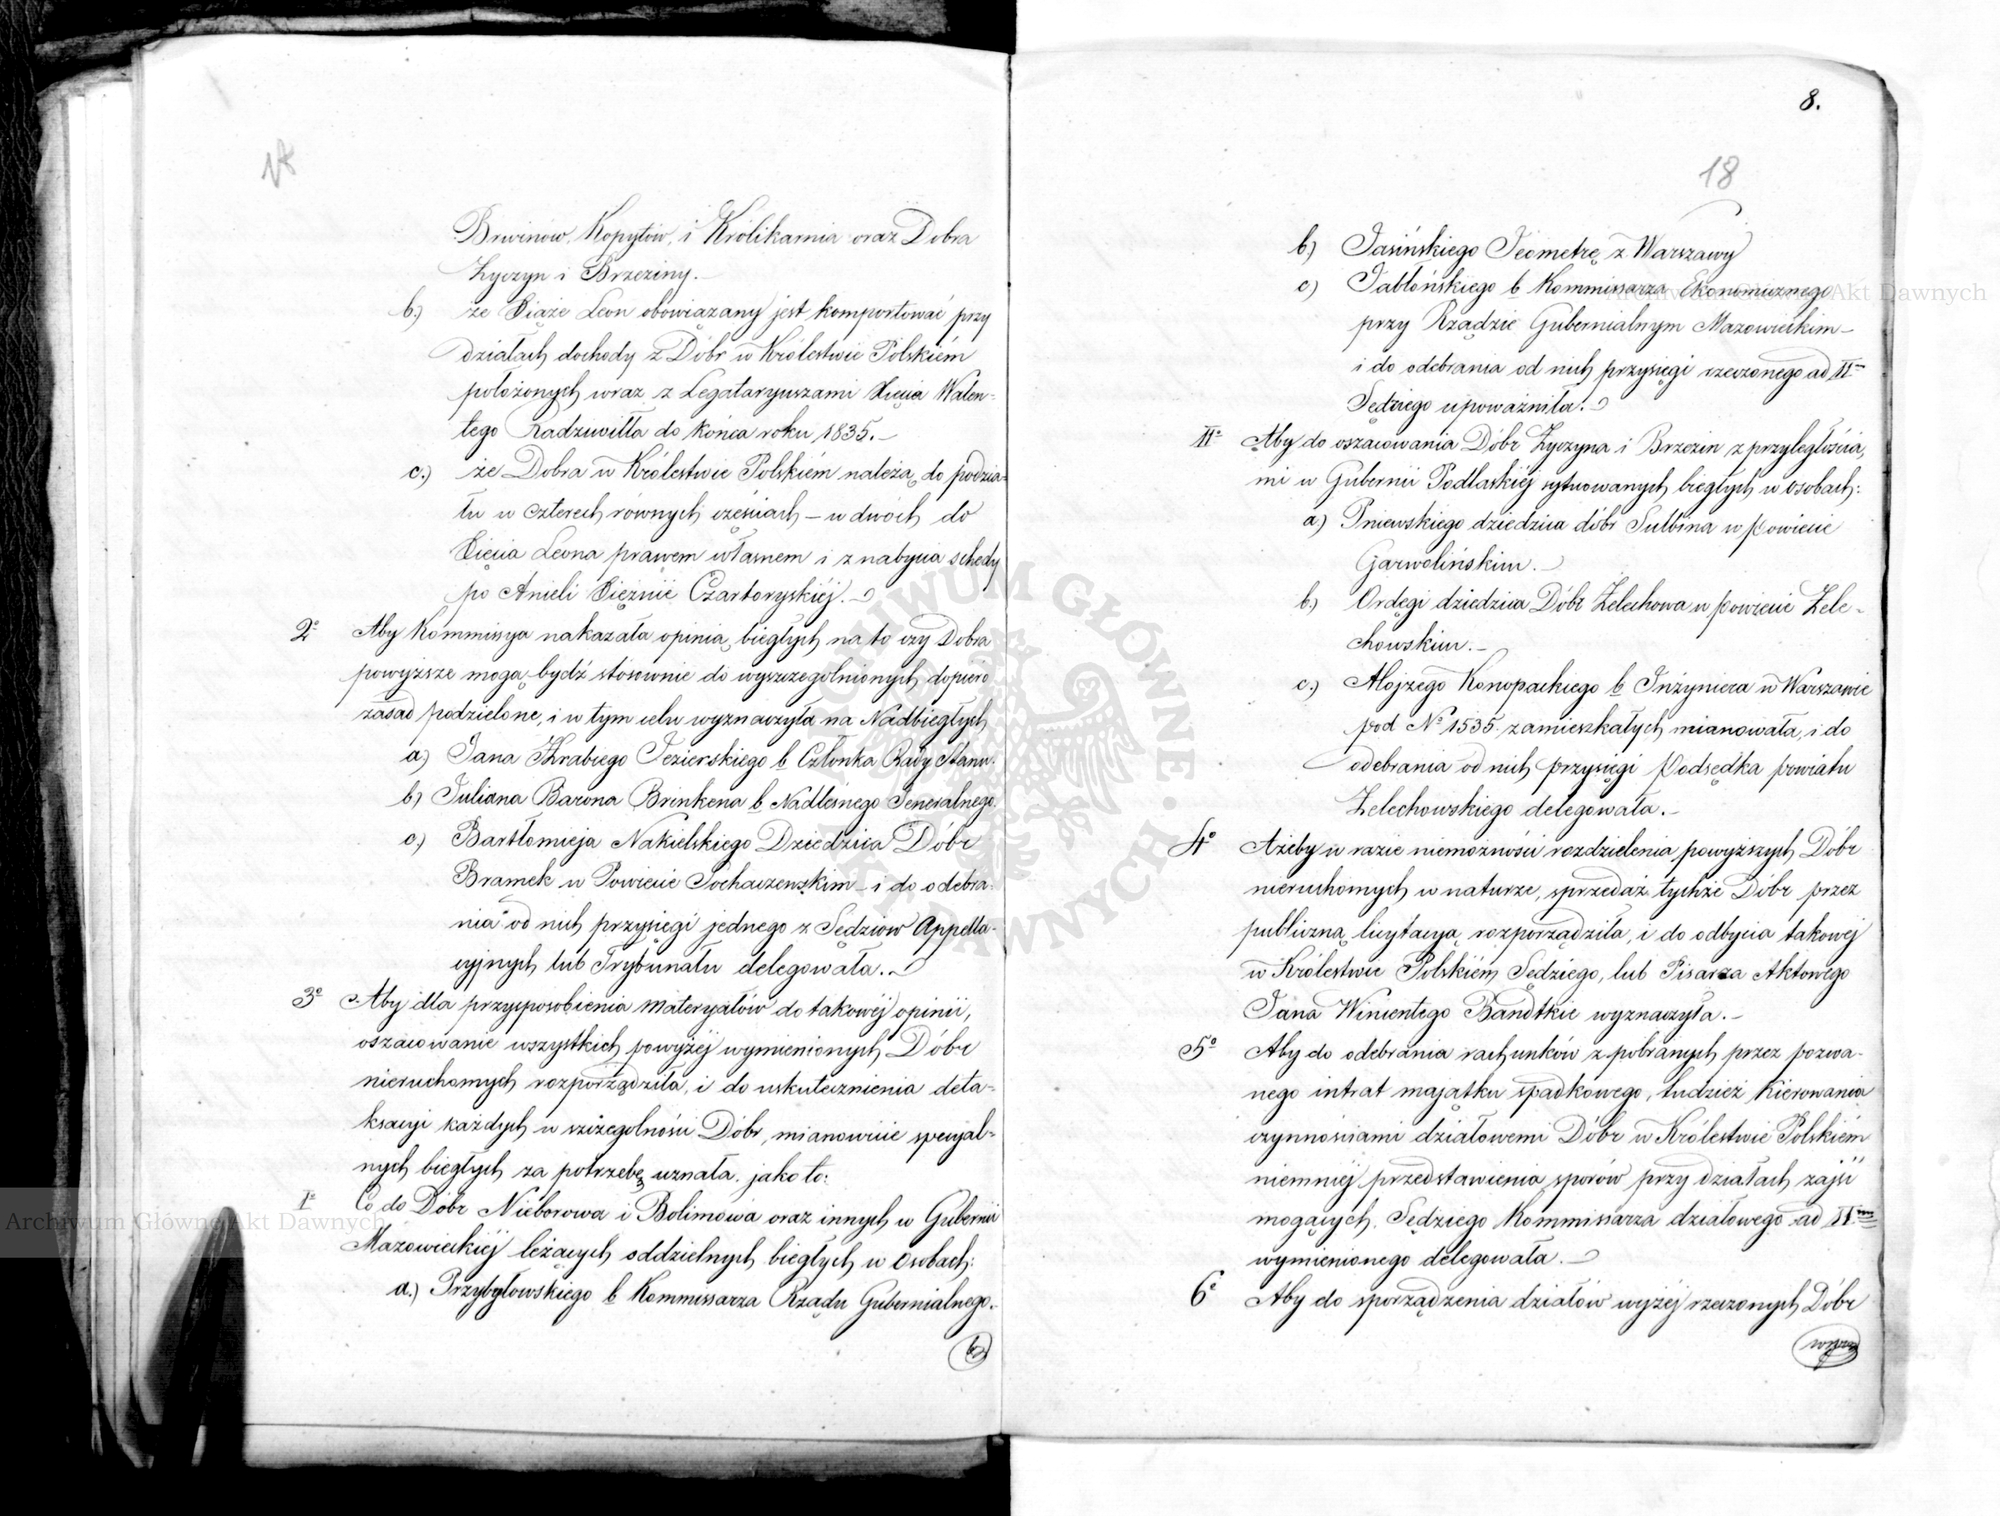 Brwinów, Kopytów, i Królikarnia oraz Dobra
Życzyn i Brzeziny.—
b.) że Xiąże Leon obowiązany jest komportować przy
działach dochody z Dóbr w Królestwie Polskiém
położonych wraz z Legataryuszami Xięcia Walen-
tego Radziwiłła do końca roku 1835.—
c.) że Dobra w Królestwie Polskiém należą do podzia-
łu w czterech równych częściach — w dwóch do
Xięcia Leona prawem własnem i z nabycia schedy
po Anieli Xiężnie Czartoryskiéj.—
2° Aby Kommissya nakazała opinią biegłych na to czy Dobra
powyższe mogą bydź stosownie do wyszczegolnionych dopiero
zasad podzielone, i w tym celu wyznaczyła na Nadbiegłych
a) Jana Hrabiego Jezierskiego b Członka Rady Stanu.
b) Juliana Barona Brinkena b Nadleśnego Jeneralnego.
c) Bartłomieja Nakielskiego Dziedzica Dóbr
Bramek w Powiecie Sochaczewskim — i do odebra-
nia od nich przysięgi jednego z Sędziow Appella-
cyjnych lub Trybunału delegowała.—
3° Aby dla przysposobienia materyałów do takowéj opinii,
oszacowanie wszystkich powyżej wymienionych Dóbr
nieruchomych rozporządziła, i do uskutecznienia deta-
ksacyi każdych w szczegolności Dóbr, mianowicie specyal-
nych biegłych za potrzebę uznała. jako to:
I° Co do Dóbr Nieborowa i Bolimowa oraz innych w Gubernii
Mazowieckiéj leżących oddzielnych biegłych w osobach:
a.) Przybyłowskiego b Kommissarza Rządu Gubernialnego.
b)
8.
18
b) Jasińskiego Jeometrę z Warszawy
c) Jabłońskiego b Kommissarza Ekonomicznego
przy Rządzie Gubernialnym Mazowieckim—
i do odebrania od nich przysięgi rzeczonego ad II
Sędziego upoważniła.
II° Aby do oszacowania Dóbr Życzyna i Brzezin z przyległościa-
mi w Gubernii Podlaskiéj sytuowanych biegłych w osobach:
a.) Pniewskiego dziedzica dóbr Sulbina w powiecie
Garwolińskim.—
b.) Ordęgi dziedzica Dóbr Żelechowa w powiecie Żele-
chowskim.—
c.) Alojzego Konopackiego b Inżyniera w Warszawie
pod N° 1535. zamieszkałych mianowała, i do
odebrania od nich przysięgi Podsędka powiatu
Żelechowskiego delegowała.—
4° Ażeby w razie niemożności rozdzielenia powyższych Dóbr
nieruchomych w naturze, sprzedaż tychże Dóbr przez
publiczną licytacyą rozporządziła, i do odbycia takowej
w Królestwie Polskiém Sędziego, lub Pisarza Aktowego
Jana Wincentego Bandtkie wyznaczyła.—
5° Aby do odebrania rachunków z pobranych przez pozwa-
nego intrat majątku spadkowego, tudzież kierowania
czynnościami działowemi Dóbr w Królestwie Polskiém
niemniej przedstawienia sporów przy działach zajść
mogących, Sędziego Kommissarza działowego ad II
wymienionego delegowała.—
6° Aby do sporządzenia działów wyżéj rzeczonych Dóbr
Archiwum Główne Akt Dawnych
Archiwum Główne Akt Dawnych
ARCHIWUM GŁÓWNE AKT DAWNYCH